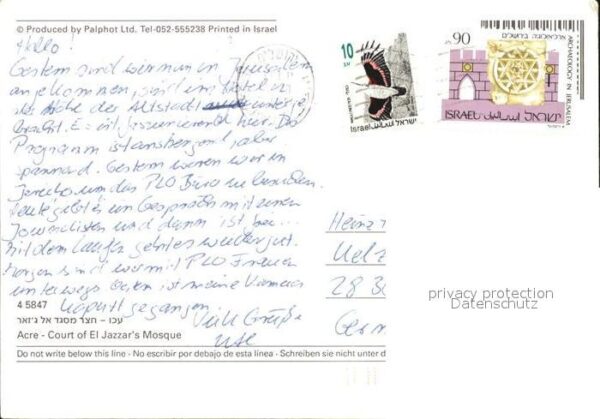 © Produced by Palphot Ltd. Tel-052-555238 Printed in Israel
Hallo!
Gestern sind wir nun in Jerusalem
angekommen, sind im Hotel in
der Nähe der Altstadt unterge
bracht. Es ist faszinierend hier. Das
Programm ist anstrengend, aber
spannend. Gestern waren wir in
Jericho um das PLO Büro zu besuchen.
Heute gibt es ein Gespräch mit einem
Journalisten und dann ist frei...
Mit dem Laufen geht es weiter gut.
Morgen sind wir mit PLO Frauen
unterwegs. Gestern ist meine Kamera
kaputt gegangen.
Viele Grüße
Ute
4 5847
עכו – חצר מסגד אל ג׳זאר
Acre - Court of El Jazzar's Mosque
Do not write below this line - No escribir por debajo de esta línea - Schreiben sie nicht unter d
10
Israel ישראל
90
ARCHAEOLOGY IN JERUSALEM
ארכיאולוגיה בירושלים
ISRAEL اسرائيل ישראל
Heinz
Uelz
28 3
Germ
privacy protection
Datenschutz